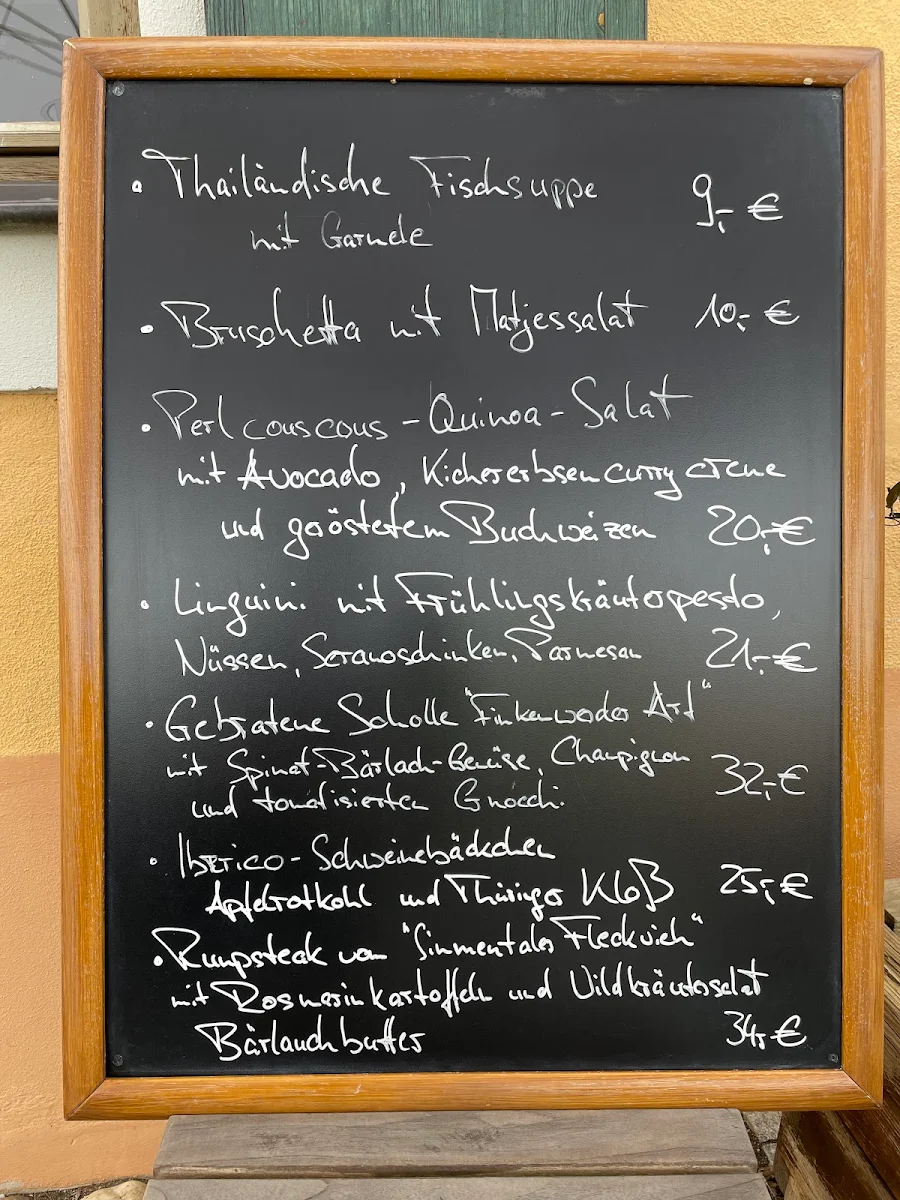 • Thailändische Fischsuppe 9,- €
mit Garnele
• Bruschetta mit Matjessalat 10,- €
• Perlcouscous-Quinoa-Salat
mit Avocado, Kichererbsencurrycreme
und geröstetem Buchweizen 20,-€
• Linguini mit Frühlingskräuterpesto,
Nüssen, Serranoschinken, Parmesan 21,-€
• Gebratene Scholle "Finkenwerder Art"
mit Spinat-Bärlach-Gemüse, Champignon
und tomatisierten Gnocchi 32,-€
• Iberico-Schweinebäckchen
Apfelrotkohl und Thüringer Kloß 25,-€
• Rumpsteak vom "Simmentaler Fleckvieh"
mit Rosmarinkartoffeln und Wildkräutersalat
Bärlauchbutter 34,-€